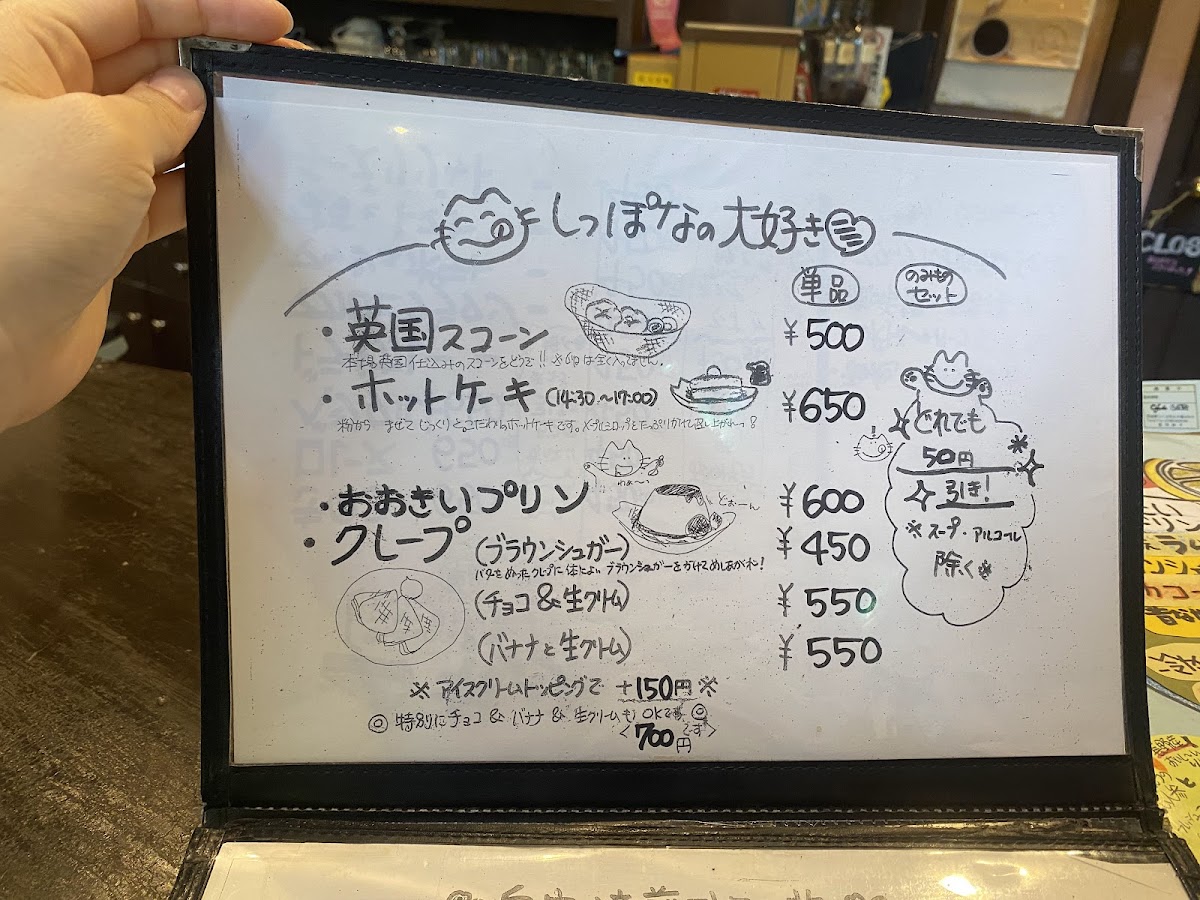 しっぽなの大好き
単品
のみものセット
・英国スコーン ¥500
本場英国仕込みのスコーンをどうぞ!!
・ホットケーキ (14:30.〜17:00) ¥650
粉から まぜて じっくりと こだわりホットケーキです。メープルシロップをたっぷりかけて召し上がれ〜
わぁ〜い
・おおきいプリン ¥600
どぉーん
・クレープ (ブラウンシュガー) ¥450
バターをぬったクレープに体によい ブラウンシュガーをかけてめしあがれ!
(チョコ&生クリーム) ¥550
(バナナと生クリーム) ¥550
※アイスクリームトッピングで +150円※
◎特別にチョコ & バナナ & 生クリームも OKです◎
<700円です>
どれでも
50円
引き!
※スープ・アルコール
除く※
CLOS